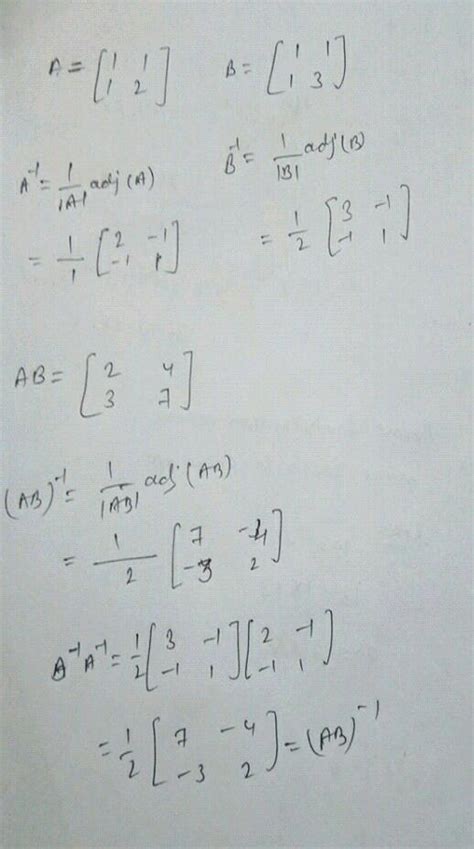 A = [1 1
1 2] B = [1 1
1 3]
A⁻¹ = 1/|A| adj (A) B⁻¹ = 1/|B| adj (B)
= 1/1 [2 -1
-1 1] = 1/2 [3 -1
-1 1]
AB = [2 4
3 7]
(AB)⁻¹ = 1/|AB| adj (AB)
= 1/2 [7 -4
-3 2]
B⁻¹ A⁻¹ = 1/2 [3 -1
-1 1] [2 -1
-1 1]
= 1/2 [7 -4
-3 2] = (AB)⁻¹